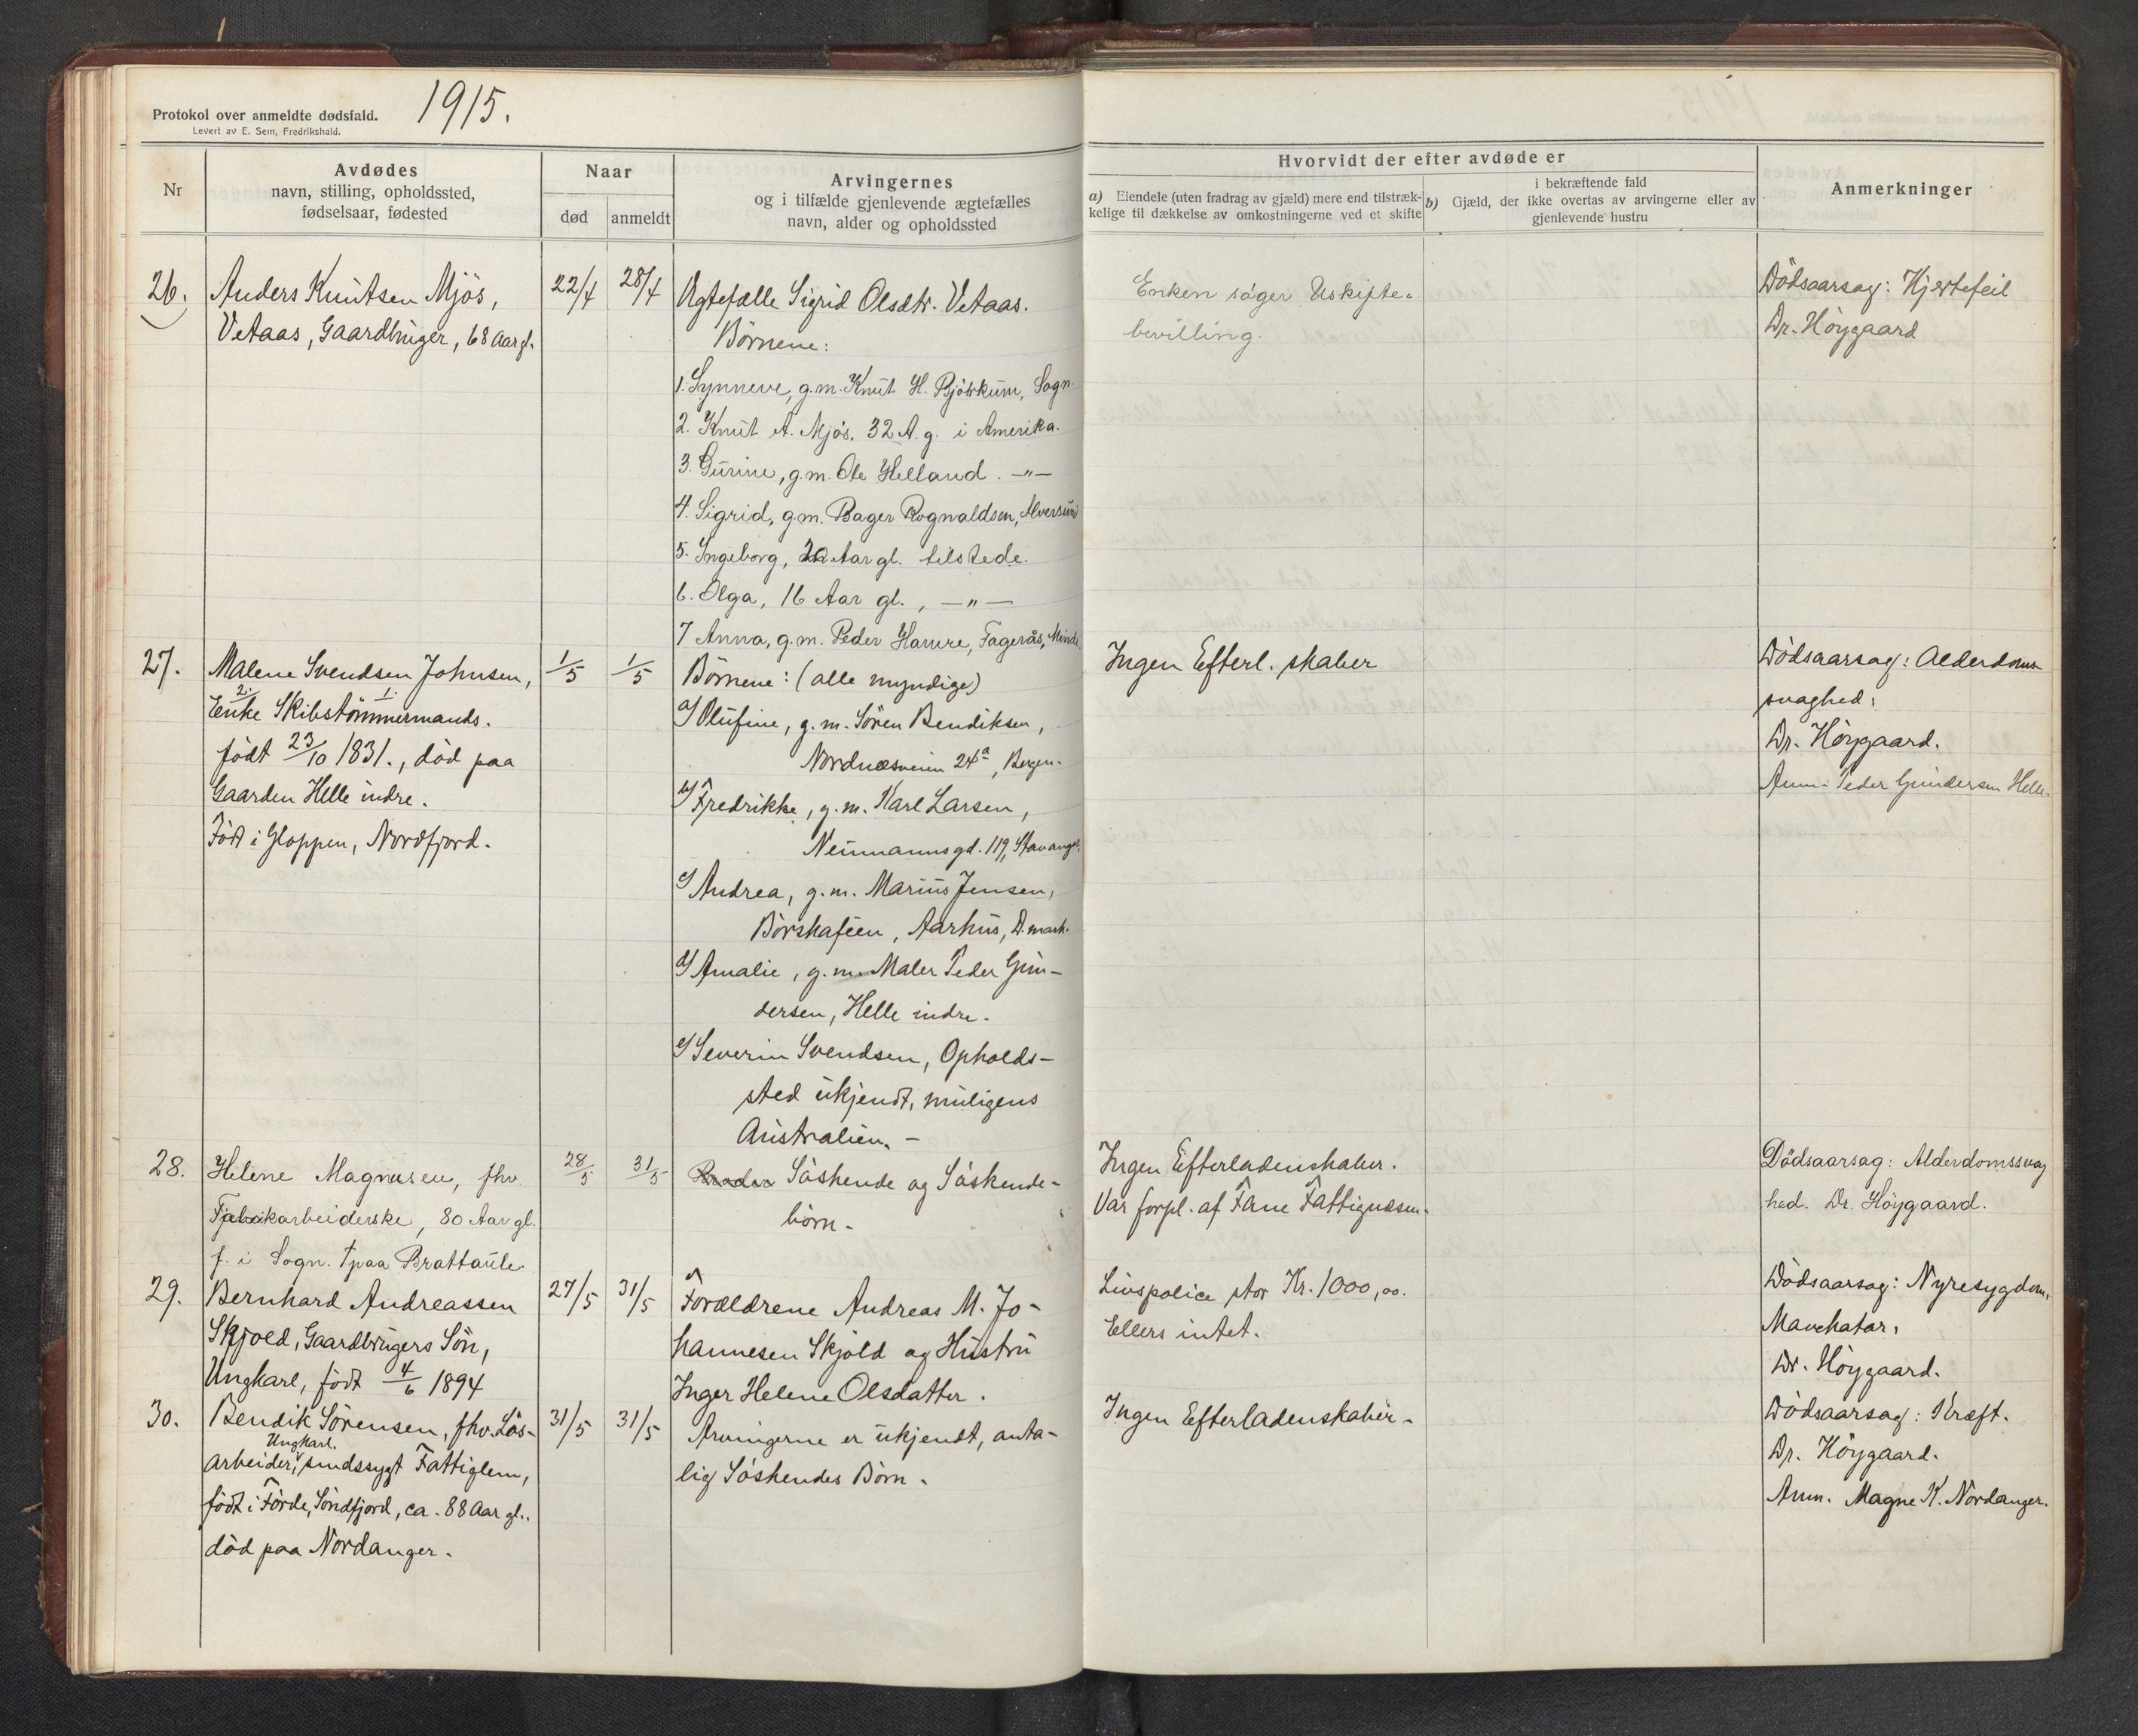 Protokol over anmeldte dødsfald.
Levert av E. Sem, Fredrikshald.
1915.
Nr
Avdødes
navn, stilling, opholdssted,
fødselsaar, fødested
Naar
død
anmeldt
Arvingernes
og i tilfælde gjenlevende ægtefælles
navn, alder og opholdssted
Hvorvidt der efter avdøde er
a) Eiendele (uten fradrag av gjæld) mere end tilstræk-
kelige til dækkelse av omkostningerne ved et skifte
i bekræftende fald
b) Gjæld, der ikke overtas av arvingerne eller av
gjenlevende hustru
Anmerkninger
26.
Anders Knutsen Mjös,
Vetaas, Gaardbruger, 68 Aar gl.
22/4
28/4
Ægtefælle Sigrid Olsdtr. Vetaas.
Börnene:
1. Synneve, g.m. Knut H. Bjórkum, Sogn.
2. Knut A. Mjös. 32 A. g. i Amerika.
3. Gurine, g.m. Ole Helland. —"—
4. Sigrid, g.m. Bager Rognaldsen, Alversund
5. Ingeborg, 20 Aar gl. tilstede.
6. Olga, 16 Aar gl., —"—
7 Anna, g.m. Peder Haure, Fagerås, Minde.
Enken söger Uskifte-
bevilling.
Dödsaarsag: Hjertefeil
Dr. Höygaard
27.
Malene Svendsen Johnsen,
2. 1.
Enke Skibstömmermands.
födt 23/10 1831., död paa
Gaarden Helle indre.
Födt i Gloppen, Nordfjord.
1/5
1/5
Börnene: (alle myndige)
a) Olufine, g.m. Sören Bendiksen,
Nordnæsveien 24a, Bergen.
b) Fredrikke, g.m. Karl Larsen,
Neumannsgd. 119, Stavanger.
c) Andrea, g.m. Marius Jensen,
Börskafeen, Aarhus, D.mark.
d) Amalie, g.m. Maler Peder Gun-
dersen, Helle indre.
e) Severin Svendsen, Opholds-
sted ukjendt, muligens
Australien. —
Ingen Efterl. skaber
Dödsaarsag: Alderdoms-
svaghed:
Dr. Höygaard.
Anm: Peder Gundersen Helle.
28.
Helene Magnusen, fhv.
Fabrikarbeiderske, 80 Aar gl.
f. i Sogn. † paa Brattaule
28/5
31/5
Söskende og Söskende-
börn.
Ingen Efterladenskaber.
Var forpl. af Fane Fattigvæsen.
Dödsaarsag: Alderdomssvag
hed. Dr. Höygaard.
29.
Bernhard Andreassen
Skjold, Gaardbrugers Sön,
Ungkarl, födt 4/6 1894
27/5
31/5
Forældrene Andreas M. Jo-
hannesen Skjold og Hustru
Inger Helene Olsdatter.
Livspolice stor Kr. 1000,00.
Ellers intet.
Dödsaarsag: Nyresygdom,
Mavekatar.
Dr. Höygaard.
30.
Bendik Sörensen, fhv. Lös-
Ungkarl.
arbeider, sindssygt Fattiglem,
födt i Förde, Söndfjord, ca. 88 Aar gl.
död paa Nordanger.
31/5
31/5
Arvingerne er ukjendt, anta-
lig Söskendes Börn.
Ingen Efterladenskaber.
Dödsaarsag: Kræft.
Dr. Höygaard.
Anm. Magne K. Nordanger.